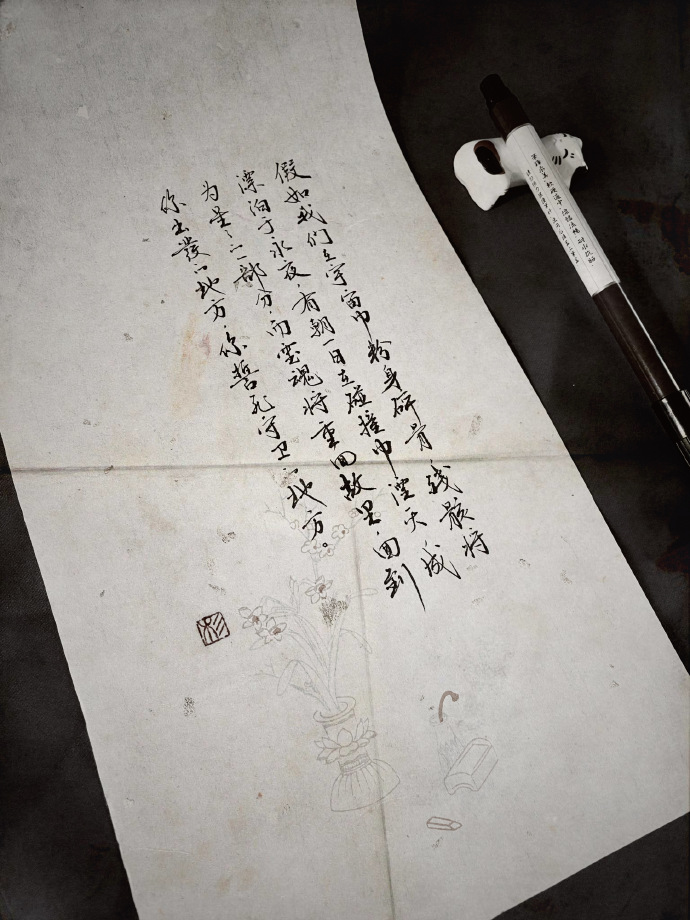 假如我们在宇宙中粉身碎骨，残骸将
漂泊于永夜，有朝一日在碰撞中湮灭，成
为星之一部分，而霊魂将重回故里，回到
你出發的地方，你誓死守卫的地方。
杉